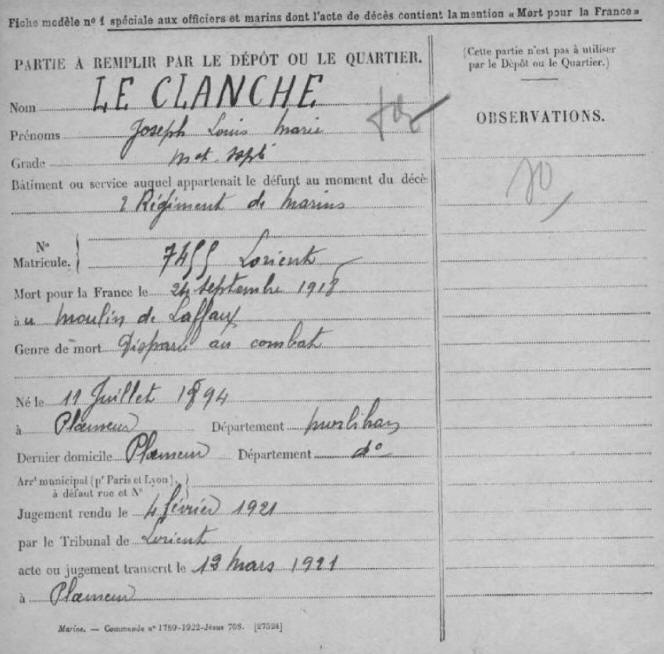 Fiche modèle n° 1 spéciale aux officiers et marins dont l'acte de décès contient la mention « Mort pour la France »
PARTIE A REMPLIR PAR LE DÉPÔT OU LE QUARTIER.
Nom LE CLANCHE
Prénoms Joseph Louis Marie
Grade Mat.
Bâtiment ou service auquel appartenait le défunt au moment du décè
2 Régiment de marins
N° Matricule. 7455 Lorient
Mort pour la France le 24 septembre 1918
à u moulin de Laffaux
Genre de mort Disparu au combat
Né le 11 Juillet 1894
à Plœmeur Département Morbihan
Dernier domicile Plœmeur Département d°
Arrt municipal (pr Paris et Lyon),
à défaut rue et N°
Jugement rendu le 4 février 1921
par le Tribunal de Lorient
acte ou jugement transcrit le 13 mars 1921
à Plœmeur
Marine. — Commande n° 1789-1922-Jésus 708. [27524]
(Cette partie n'est pas à utiliser
par le Dépôt ou le Quartier.)
OBSERVATIONS.